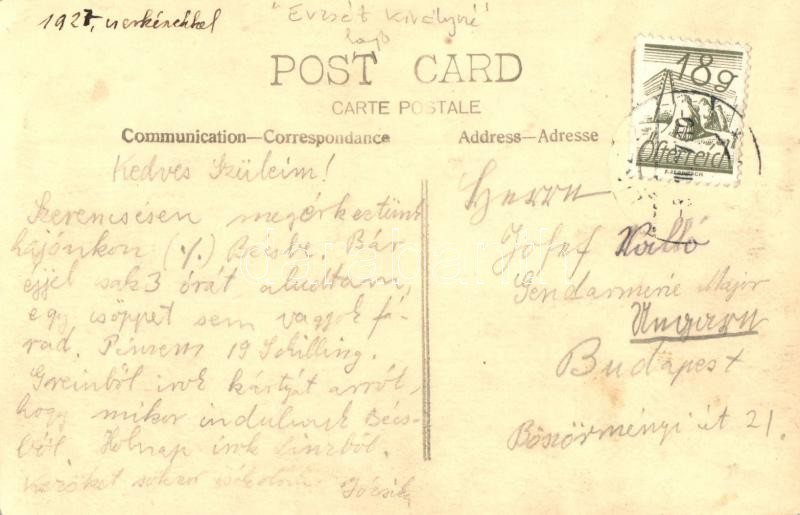 1927, cserkészekkel
"Erzsét Királyné"
hajó
POST CARD
CARTE POSTALE
Communication—Correspondance
Address—Adresse
18g
Österreich
Kedves Szüleim!
Szerencsésen megérkeztünk
hajónkon (./.) Bécsbe. Bár
éjjel csak 3 órát aludtam,
egy csöppet sem vagyok fá-
rad. Pénzem 19 Schilling.
Greinból irok kártyát arról,
hogy mikor indulunk Bécs-
ből. Holnap irok Linzből.
Kezüket sokszor csókolom Józsi
Herrn
Josef Kalló
Gendarmerie Major
Ungarn
Budapest
Böszörményi út 21.